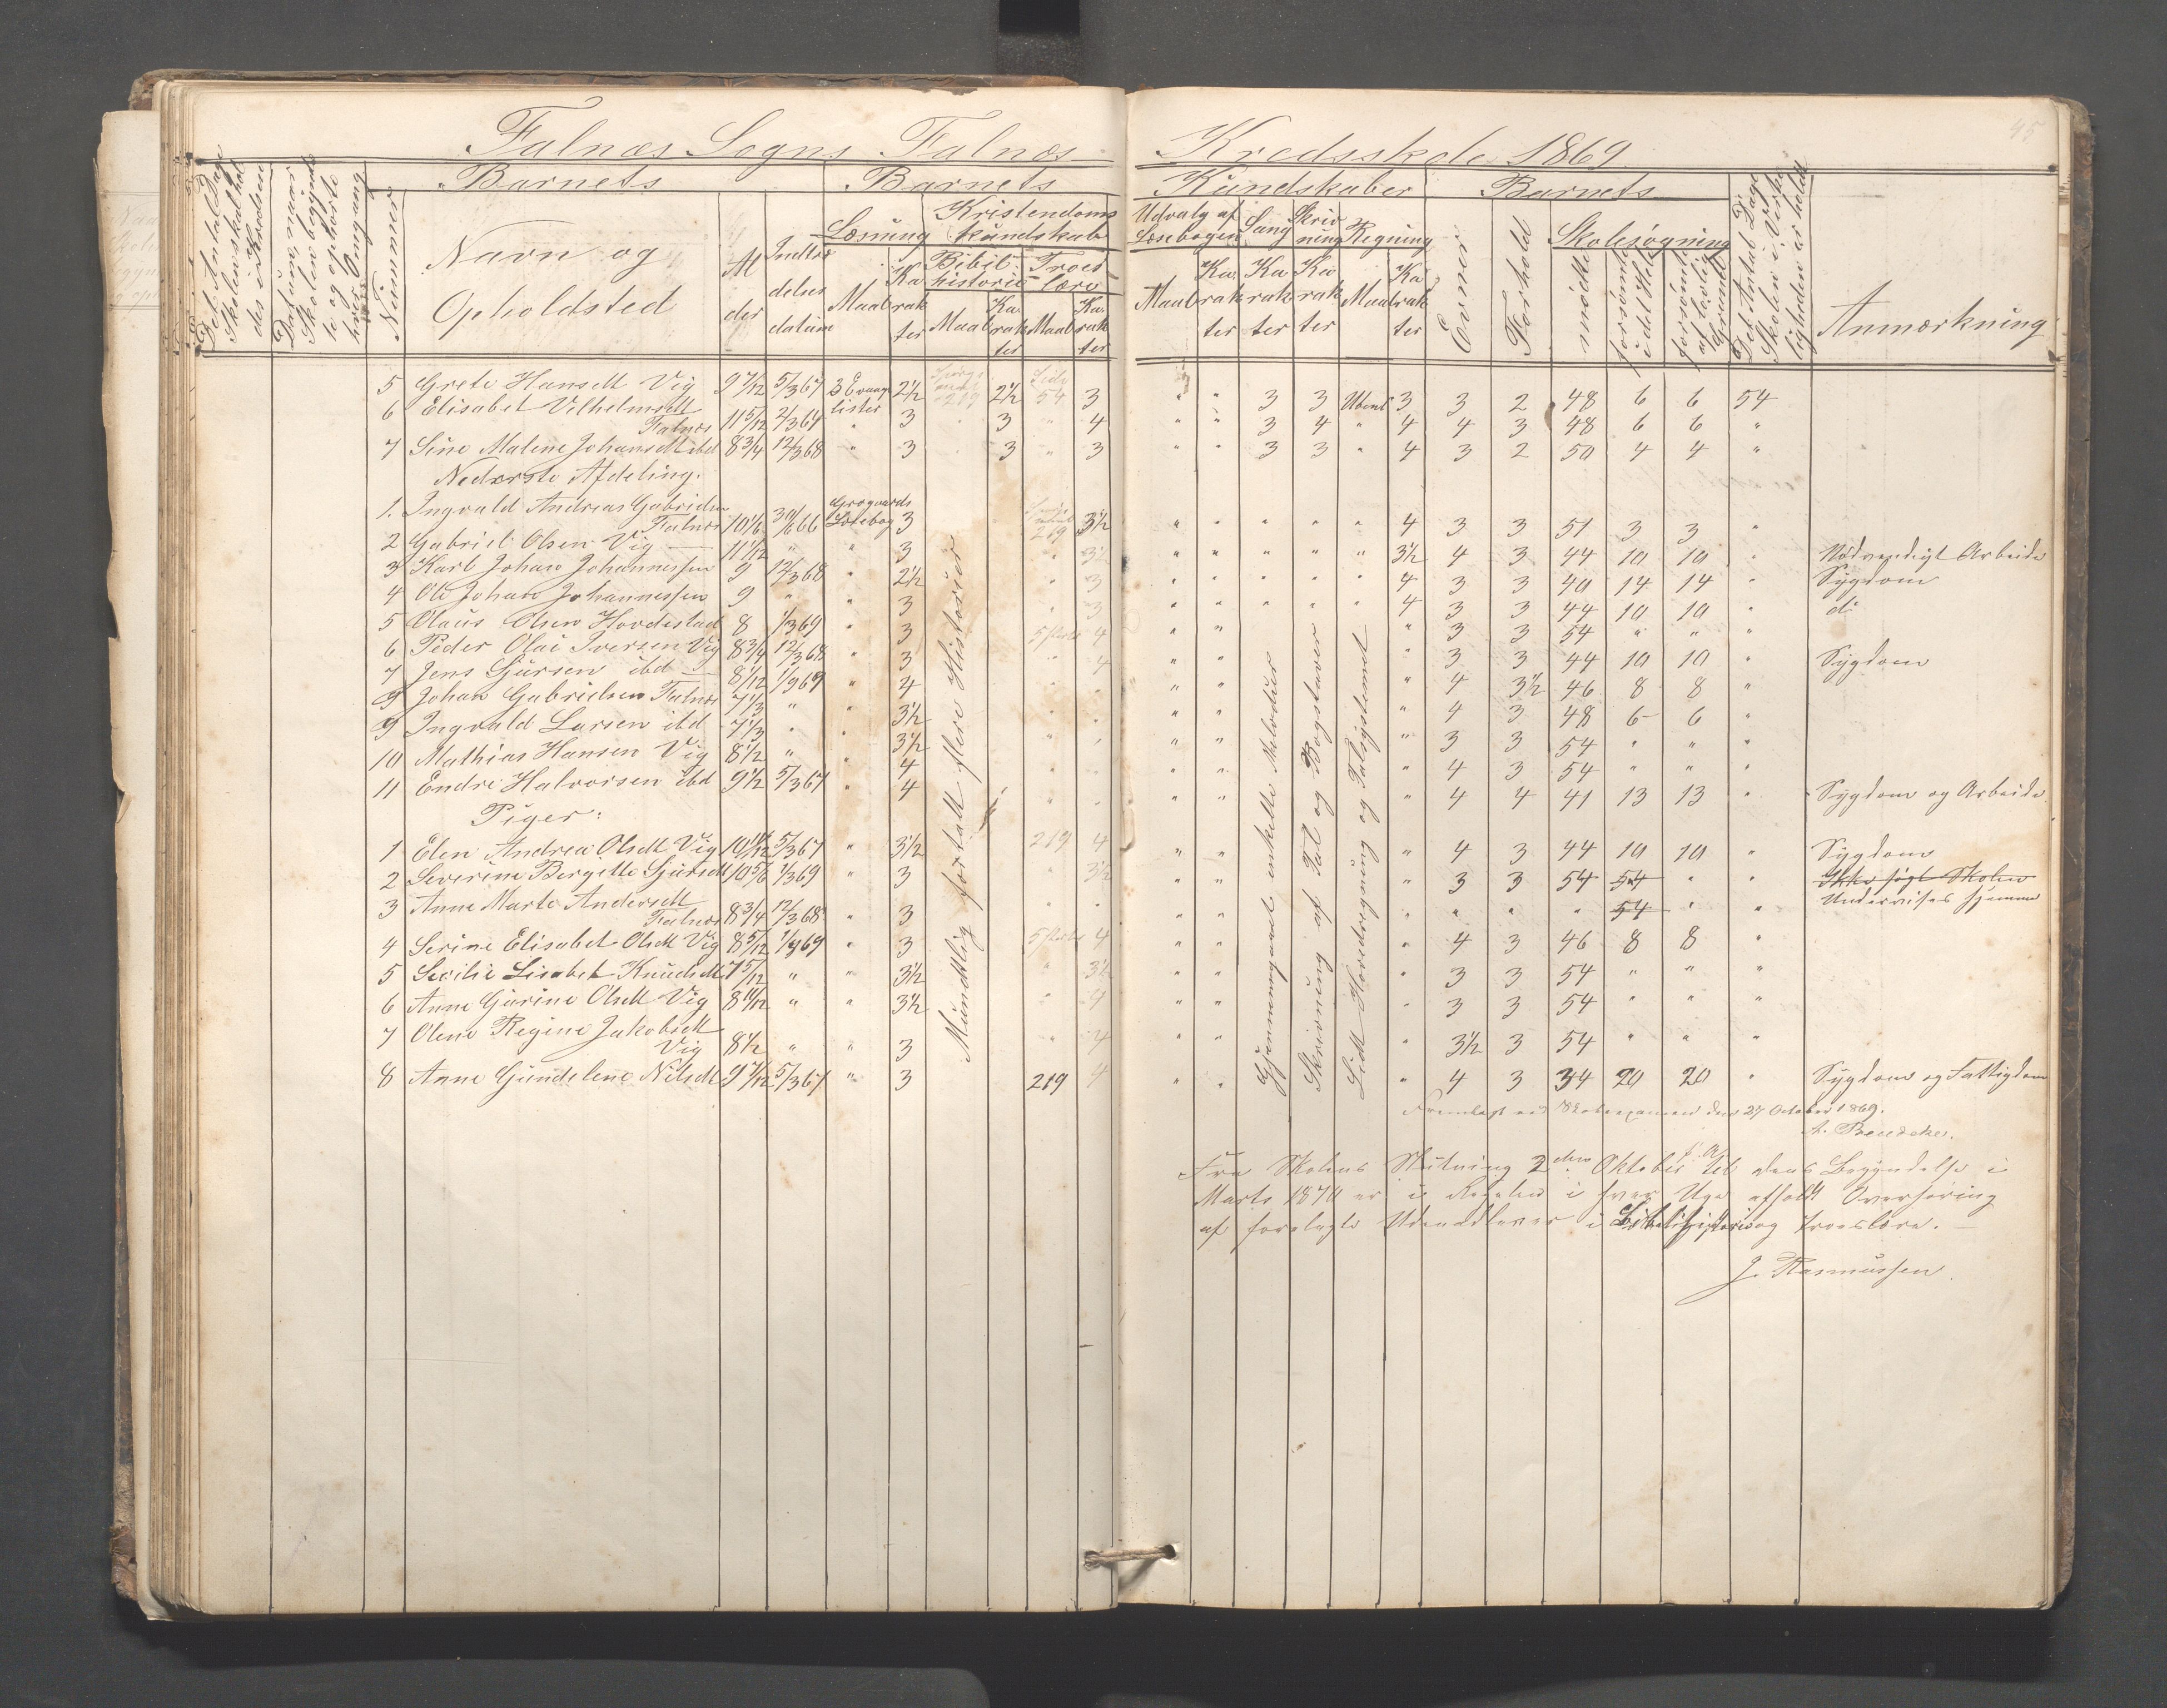 45
Falnes Sogns Falnes Kredsskole 1869
Det Antal Dage Skolen skal holdes i Kredsen
Datum, naar Skolen begyndte og ophørte hver Gang
Nummer
Barnets
Navn og Opholdsted
Alder
Indtrædelses datum
Barnets Kundskaber
Læsning
Maal
Karakter
Kristendoms kundskab
Bibelhistorie
Maal
Karakter
Troeslære
Maal
Karakter
Udvalg af Læsebogen
Maal
Karakter
Sang
Karakter
Skrivning
Karakter
Regning
Maal
Karakter
Barnets
Evner
Forhold
Skolesøgning
mødte
forsømte i det Hele
forsømte af lovlig Grund
Det Antal Dage Skolen i Virkeligheden er holdt
Anmærkning
5 Grete Hansdtt Vig 9 7/12 5/3 67 3 Evangelister 2½ Spørgsmaal 219 2½ Side 54 3 " " 3 3 Ubent 3 3 2 48 6 6 54
6 Elisabet Vilhelmsdtt
Falnes 11 5/12 2/3 64 " 3 " 3 " 4 " " 3 4 " 4 4 3 48 6 6 "
7 Sine Malene Johansdtt ibd 8 3/4 12/3 68 " 3 " 3 " 3 " " 3 3 " 4 3 2 50 4 4 "
Nederste Afdeling.
1. Ingvald Andreas Gabrielsen
Falnes 10 1/6 30/6 66 Grøgaards Læsebog 3 Spørgsmaal 219 3½ " " " " " 4 3 3 51 3 3 "
2 Gabriel Olsen Vig 11 1/12 " " 3 " 3½ " " " " " 3½ 4 3 44 10 10 " Nødvendigt Arbeide
3 Karl Johan Johannessen 9 12/3 68 " 2½ " 3 " " " " " 4 3 3 40 14 14 " Sygdom
4 Ole Johan Johannessen 9 " " 3 " 3 " " " " " 4 3 3 44 10 10 " do
5 Olaus Olsen Hovdestad 8 1/3 69 " 3 5 Parter 4 " " " 3 3 54 " " "
6 Peder Olai Iversen Vig 8 3/4 12/3 68 " 3 " 4 " " " 3 3 44 10 10 " Sygdom
7 Jens Sjursen ibd 8 1/12 1/3 69 " 4 " " " " " 4 3½ 46 8 8 "
8 Johan Gabrielsen Falnes 7 1/3 " " 3½ " " " " " 4 3 48 6 6 "
9 Ingvald Larsen ibd 7 1/3 " " 3½ " " " " " 3 3 54 " " "
10 Mathias Hansen Vig 8½ " " 4 " " " " " 4 3 54 " " "
11 Endre Halvorsen ibd 9½ 5/3 67 " 4 " " " " " 4 4 41 13 13 " Sygdom og Arbeide
Piger:
1 Elen Andrea Olsdtt Vig 10 11/12 5/3 67 " 3½ 219 4 " " " 4 3 44 10 10 " Sygdom
2 Severine Bergitte Sjursdtt 10 5/6 1/3 69 " 3 " 3½ " " " 3 3 54 54 " " Ikke søgt Skolen
3 Anne Marte Andersdtt
Falnes 8 3/4 12/3 68 " 3 " " " " " " " " 54 " " Undervises hjemme
4 Serine Elisabet Olsdtt Vig 8 5/12 1/3 69 " 3 5 Parter 4 " " " 4 3 46 8 8 "
5 Secilie Lisabet Knudsdtt 7 5/12 " " 3½ " 3½ " " " 3 3 54 " " "
6 Anne Gurine Olsdtt Vig 8 11/12 " " 3½ " 4 " " " 3 3 54 " " "
7 Olene Regine Jakobsdtt
Vig 8½ " " 3 " 4 " " " 3½ 3 54 " " "
8 Anne Gundelene Nilsdtt 9 7/12 5/3 67 " 3 219 4 " " " 4 3 34 20 20 " Sygdom og Fattigdom
Mundtlig fortalt flere Historier
Gjennemgaaet enkelte Melodier
Skrivning af Tal og Bogstaver
Lidt Hovedregning og Talsystemet
Fremlagt ved Skoleexamen den 27 October 1869.
A. Bendeke.
Fra Skolens Slutning 2den Oktober f. A. til dens Begyndelse i
Marts 1870 er i Regelen i hver Uge afholdt Overhøring
af forelagte Udenadlexer i Bibelhistorie og Troeslære.
J. Rasmussen